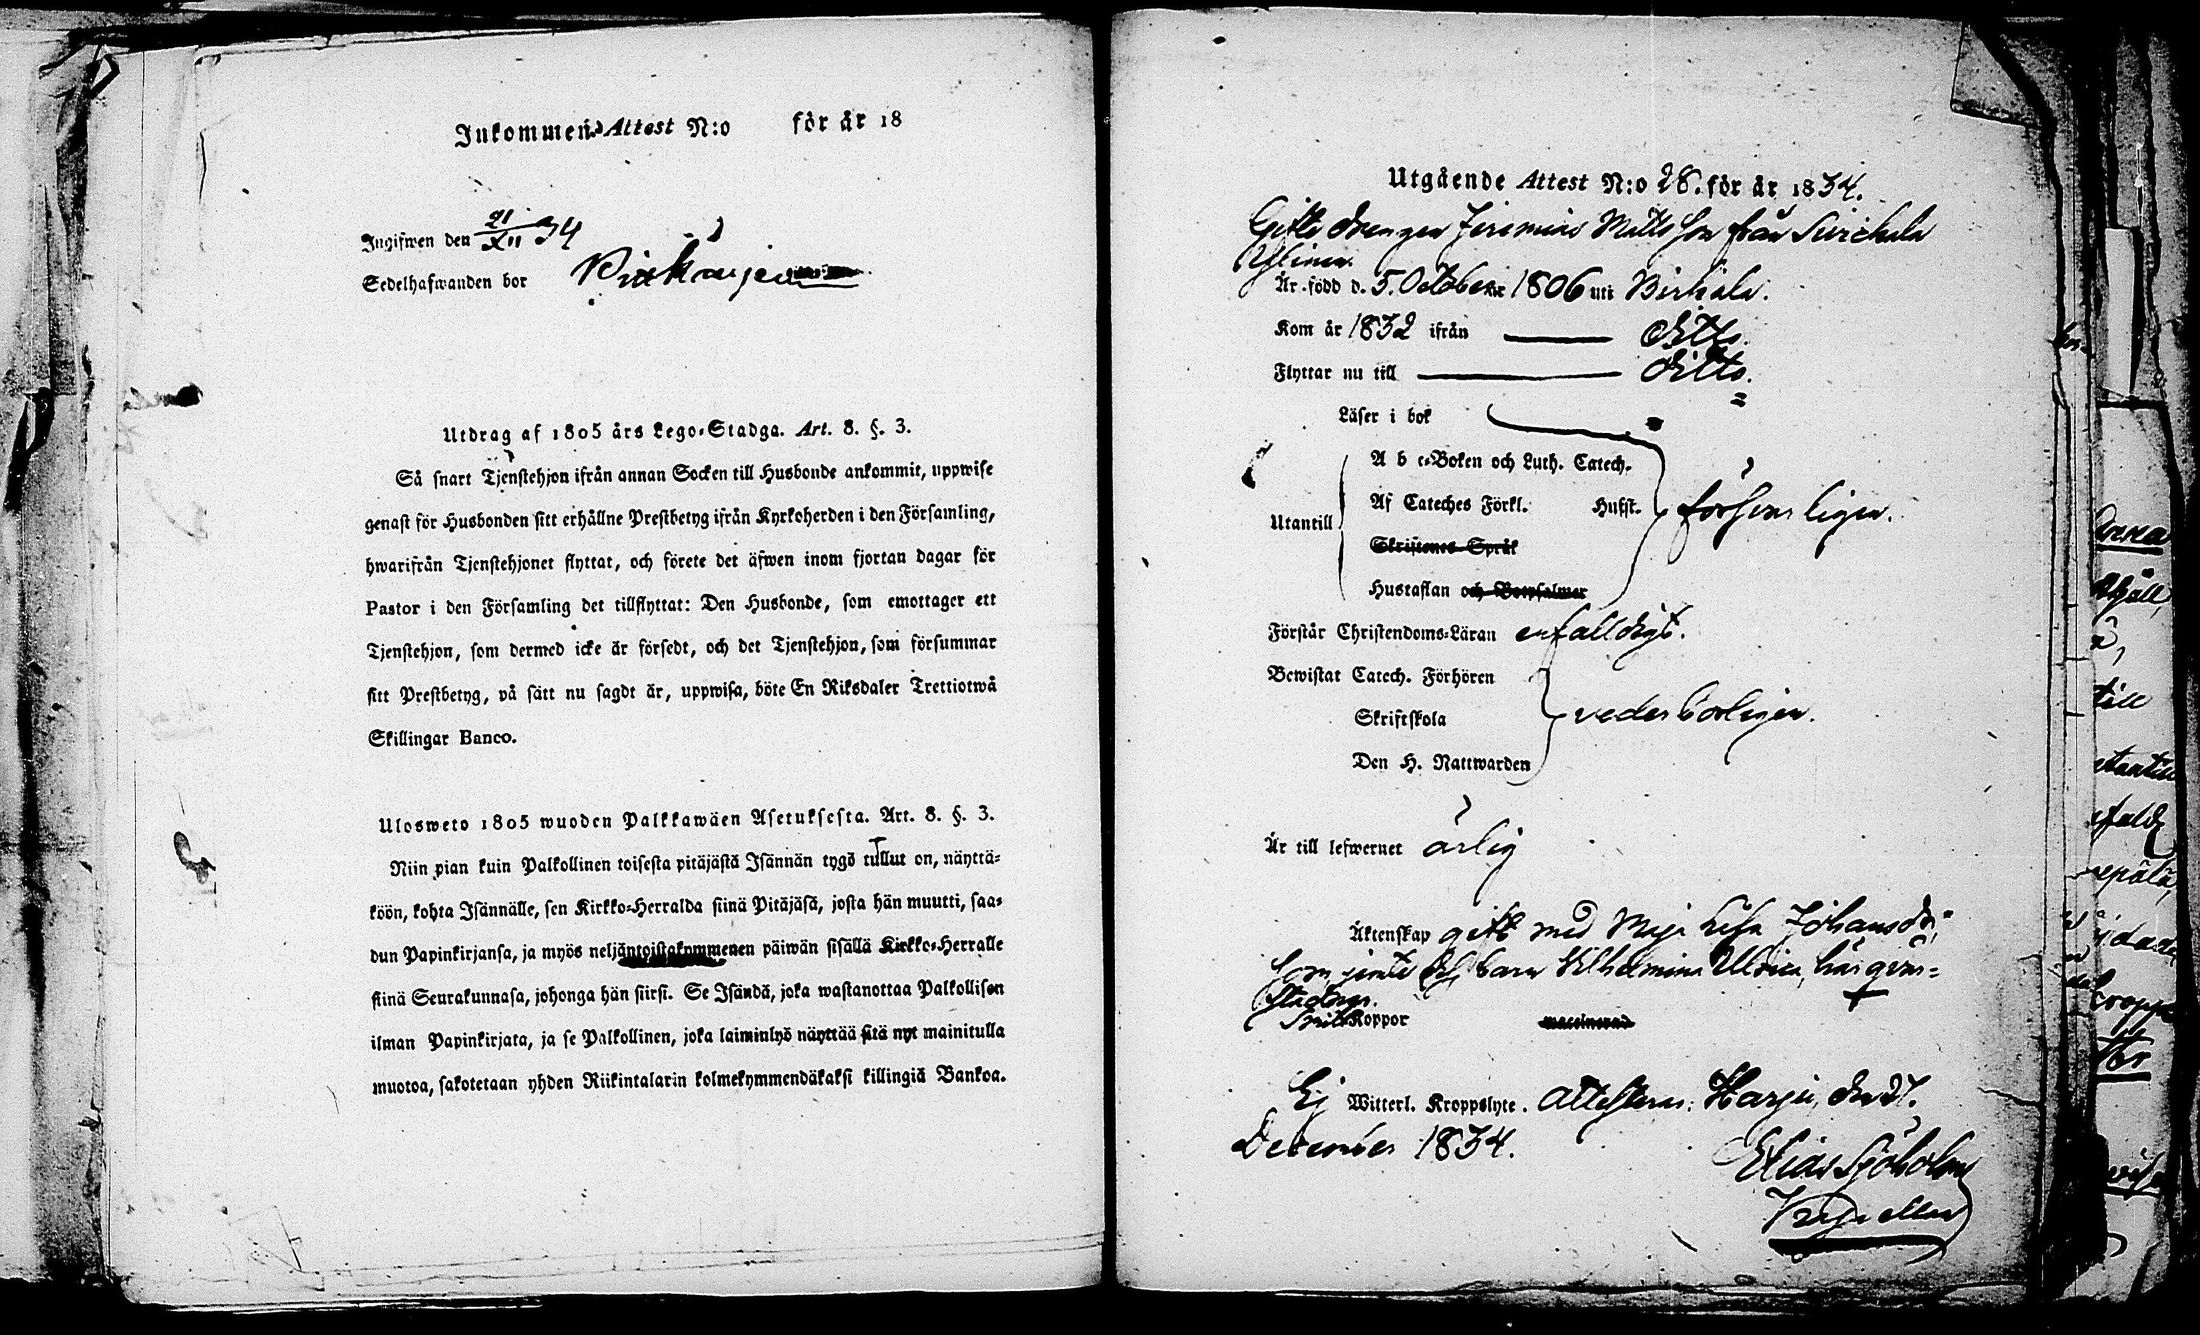 Inkommen Attest N:o för år 18
Ingifwen den 21/XII 34
Sedelhafwanden bor
Utdrag af 1805 års Lego-Stadga. Art. 8. §. 3.
Så snart Tjenstehjon ifrån annan Socken till Husbonde ankommit, uppwise
genast för Husbonden sitt erhållne Prestbetyg ifrån Kyrkoherden i den Församling,
hwarifrån Tjenstehjonet flyttat, och förete det äfwen inom fjortan dagar för
Pastor i den Församling det tillflyttat: Den Husbonde, som emottager ett
Tjenstehjon, som dermed icke är försedt, och det Tjenstehjon, som försummar
sitt Prestbetyg, på sätt nu sagdt är, uppwisa, böte En Riksdaler Trettiotwå
Skillingar Banco.
Ulosweto 1805 wuoden Palkkawäen Asetuksesta. Art. 8. §. 3.
Niin pian kuin Palkollinen toisesta pitäjästä Isännän tygö tullut on, näyttä-
köön, kohta Isännälle, sen Kirkko-Herralda siinä Pitäjäsä, josta hän muutti, saa-
dun Papinkirjansa, ja myös neljäntoistakymmenen päiwän sisällä Kirkko-Herralle
siinä Seurakunnasa, johonga hän siirsi. Se Isändä, joka wastanottaa Palkollisen
ilman Papinkirjata, ja se Palkollinen, joka laiminlyö näyttää sitä nyt mainitulla
muotoa, sakotetaan yhden Riikintalarin kolmekymmendäkaksi killingiä Bankoa.
Utgående Attest N:o 28. för år 1834.
Gifte drengen Jeremias Matts son från Suickula
Yliner
Är född d. 5. October 1806 uti Birkala.
Kom år 1832 ifrån ditto.
Flyttar nu till ditto.
Läser i bok
A b c-Boken och Luth. Catech.
Utantill Af Cateches Förkl. Husst. försvarligen.
Skriftenes Språk
Hustaflan och Botpsalmer
Förstår Christendoms-Läran enfalldigt.
Bewistat Catech. Förhören
Skriftskola vederbörligen.
Den H. Nattwarden
Är till lefwernet ärlig
Äktenskap gift med Maja Lisa Johansdr,
som jemte barn Vilhelmina Ulrica, här qvar-
stadnar.
Koppor vaccinerad
Ej Witterl. Kroppslyte. Attesteras: Harju, den 21.
December 1834.
Elias Sjöholm
Kapellan